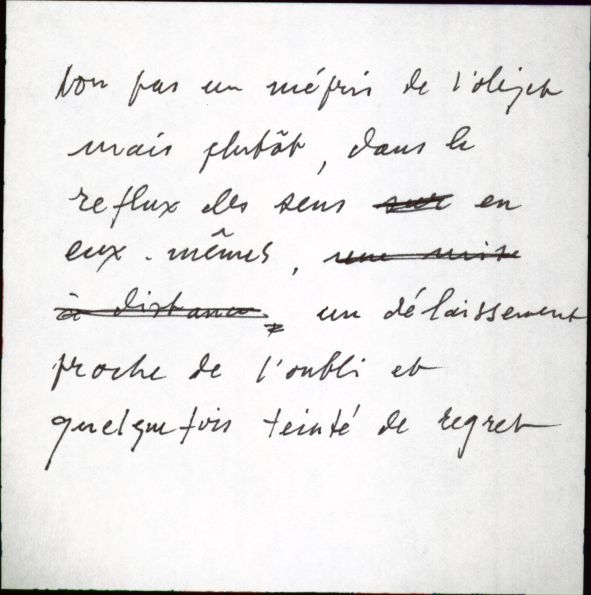 Non pas un mépris de l'objet
mais plutôt, dans le
reflux des sens sur en
eux-mêmes, une mise
à distance, un délaissement
proche de l'oubli et
quelquefois teinté de regret